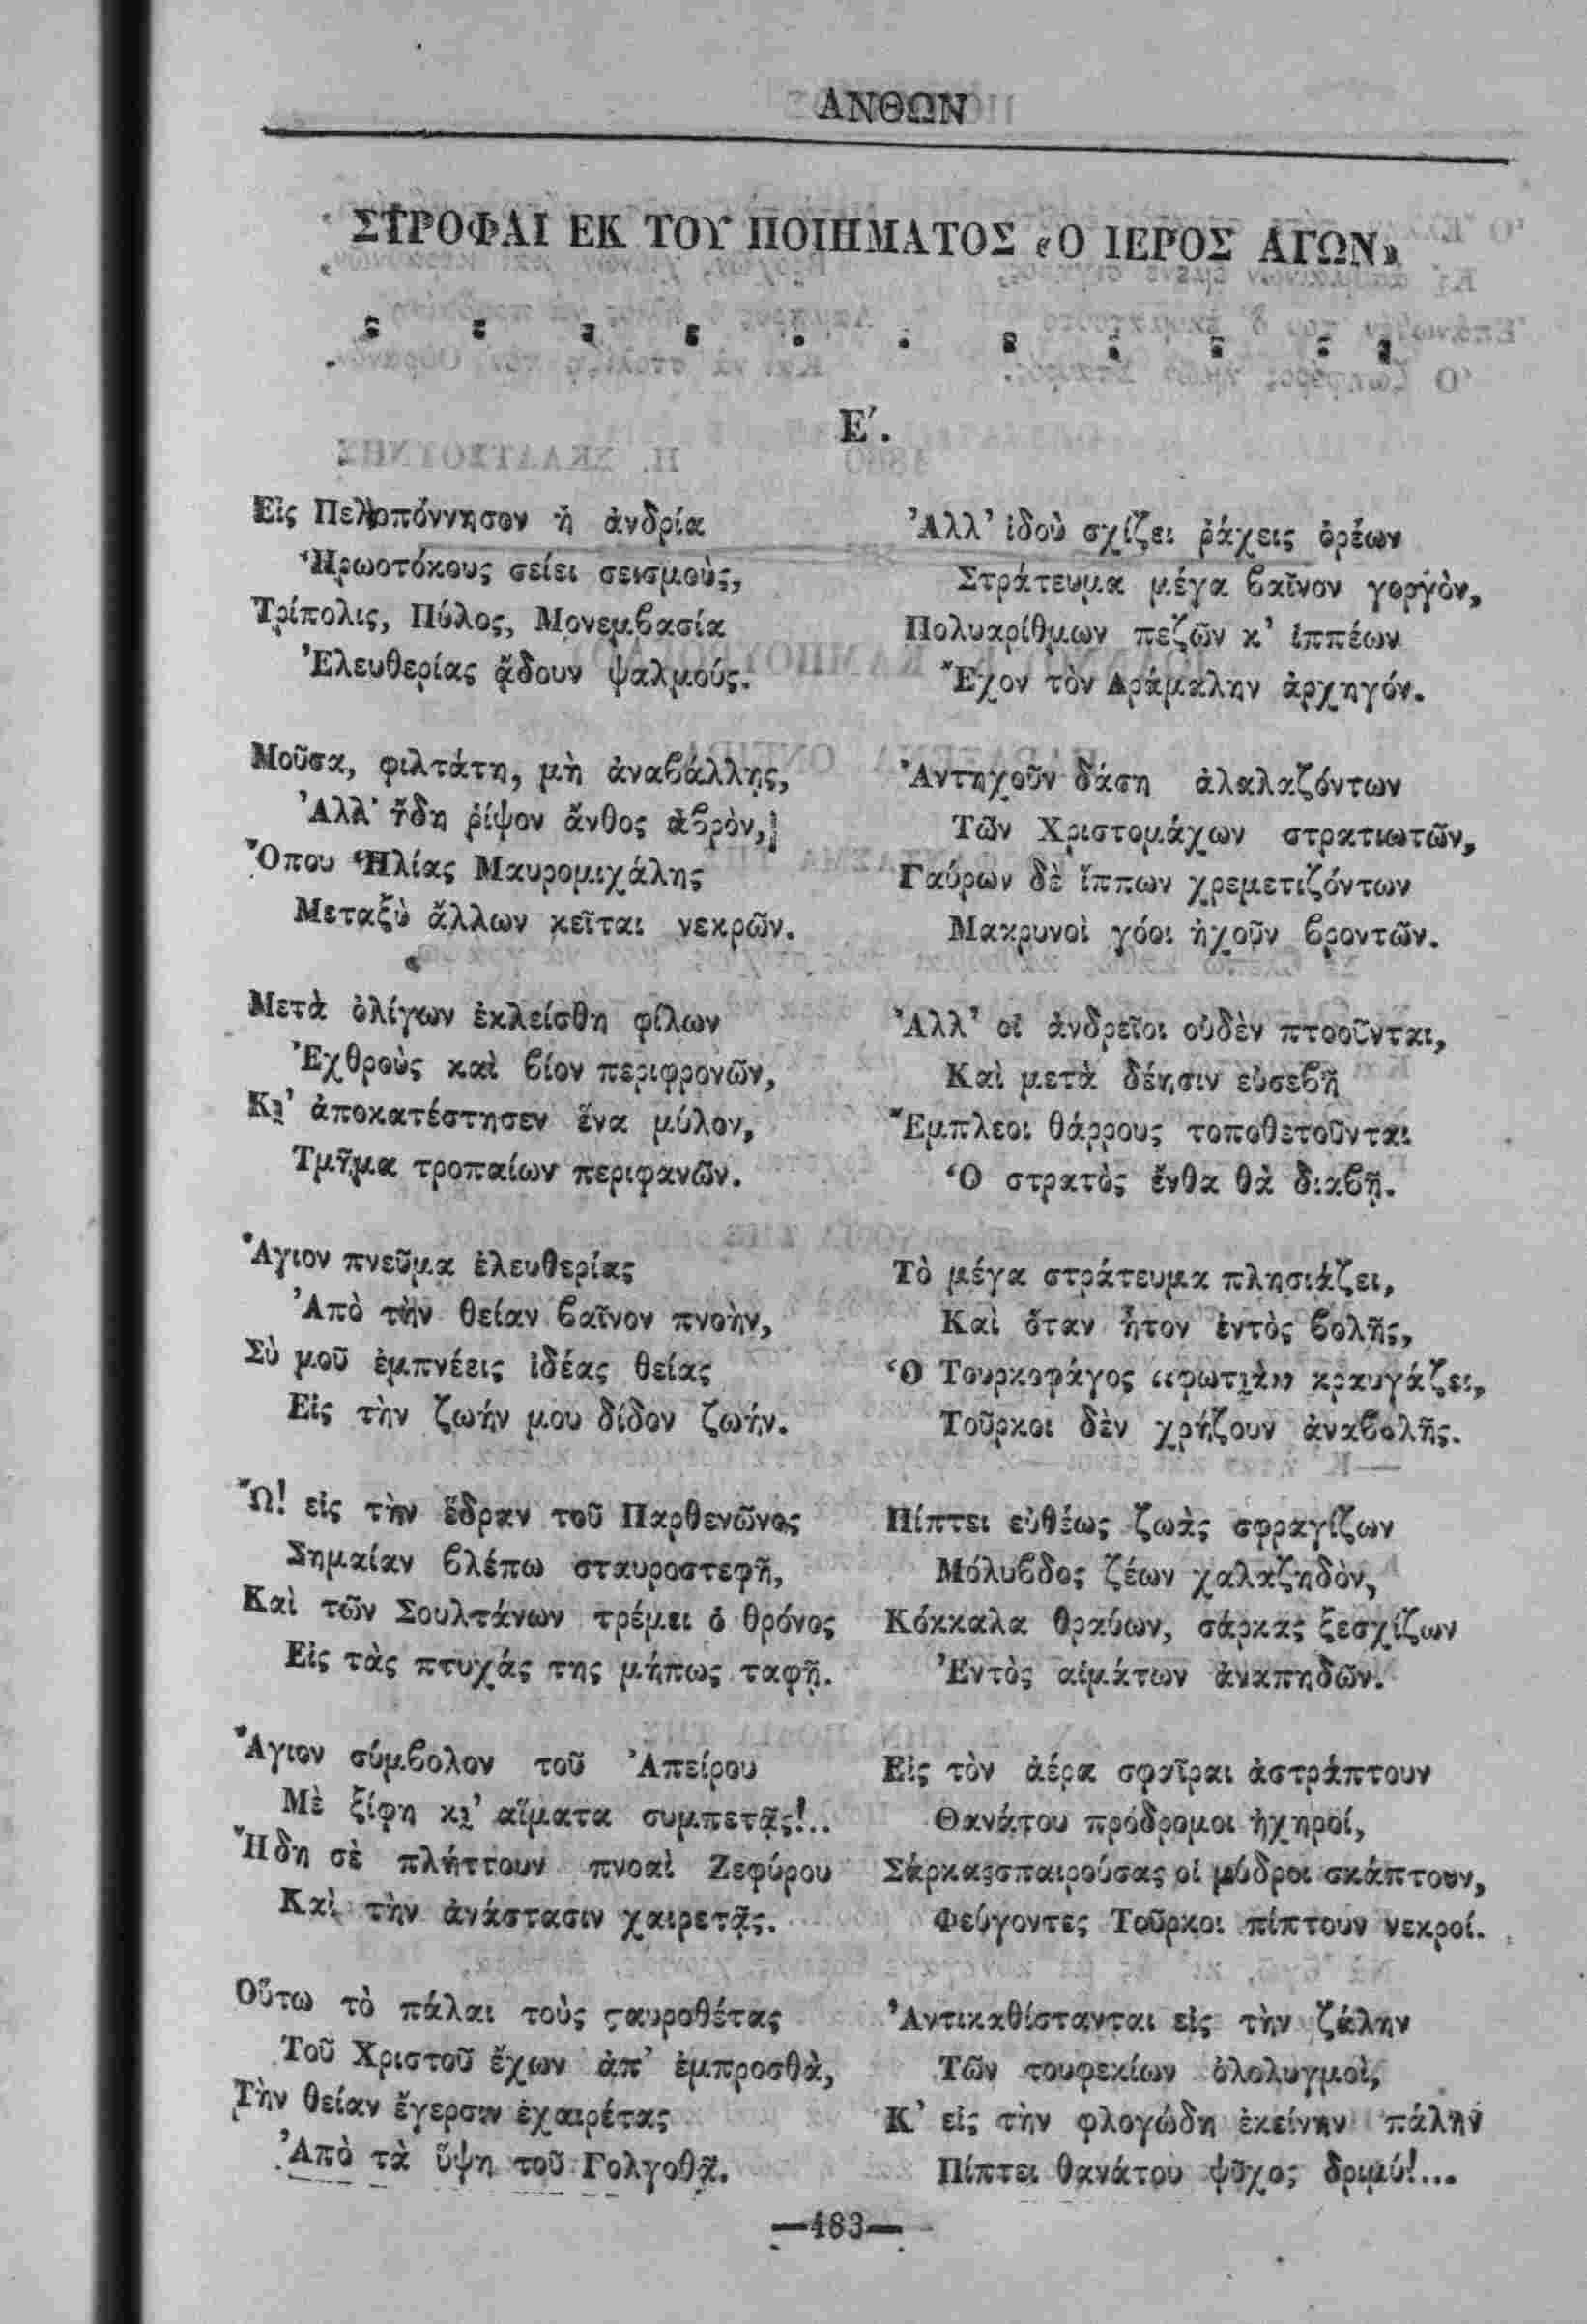 ΑΝΘΩΝ
ΣΤΡΟΦΑΙ ΕΚ ΤΟΥ ΠΟΙΗΜΑΤΟΣ «Ο ΙΕΡΟΣ ΑΓΩΝ»
Ε΄.
Εἰς Πελοπόννησον ἡ ἀνδρία
Ἡρωοτόκους σείει σεισμοὺς,
Τρίπολις, Πύλος, Μονεμβασία
Ἐλευθερίας ᾄδουν ψαλμούς.
Μοῦσα, φιλτάτη, μὴ ἀναβάλλῃς,
Ἀλλ' ἤδη ῥίψον ἄνθος ἁβρὸν,
Ὅπου Ἠλίας Μαυρομιχάλης
Μεταξὺ ἄλλων κεῖται νεκρῶν.
Μετὰ ὀλίγων ἐκλείσθη φίλων
Ἐχθροὺς καὶ βίον περιφρονῶν,
Κι' ἀποκατέστησεν ἕνα μύλον,
Τμῆμα τροπαίων περιφανῶν.
Ἅγιον πνεῦμα ἐλευθερίας
Ἀπὸ τὴν θείαν βαῖνον πνοὴν,
Σὺ μοῦ ἐμπνέεις ἰδέας θείας
Εἰς τὴν ζωήν μου δίδον ζωήν.
Ὢ! εἰς τὴν ἕδραν τοῦ Παρθενῶνος
Σημαίαν βλέπω σταυροστεφῆ,
Καὶ τῶν Σουλτάνων τρέμει ὁ θρόνος
Εἰς τὰς πτυχάς της μήπως ταφῇ.
Ἅγιον σύμβολον τοῦ Ἀπείρου
Μὲ ξίφη κι' αἵματα συμπετᾷς!..
Ἤδη σὲ πλήττουν πνοαὶ Ζεφύρου
Καὶ τὴν ἀνάστασιν χαιρετᾷς.
Οὕτω τὸ πάλαι τοὺς ϛαυροθέτας
Τοῦ Χριστοῦ ἔχων ἀπ' ἐμπροσθὰ,
Τὴν θείαν ἔγερσιν ἐχαιρέτας
Ἀπὸ τὰ ὕψη τοῦ Γολγοθᾶ.
Ἀλλ' ἰδοὺ σχίζει ῥάχεις ὀρέων
Στράτευμα μέγα βαῖνον γοργὸν,
Πολυαρίθμων πεζῶν κ' ἱππέων
Ἔχον τὸν Δράμαλην ἀρχηγόν.
Ἀντηχοῦν δάση ἀλαλαζόντων
Τῶν Χριστομάχων στρατιωτῶν,
Γαύρων δὲ ἵππων χρεμετιζόντων
Μακρυνοὶ γόοι ἠχοῦν βροντῶν.
Ἀλλ' οἱ ἀνδρεῖοι οὐδὲν πτοοῦνται,
Καὶ μετὰ δέησιν εὐσεβῆ
Ἔμπλεοι θάρρους τοποθετοῦνται
Ὁ στρατὸς ἔνθα θὰ διαβῇ.
Τὸ μέγα στράτευμα πλησιάζει,
Καὶ ὅταν ἦτον ἐντὸς βολῆς,
Ὁ Τουρκοφάγος «φωτιὰ» κραυγάζει,
Τοῦρκοι δὲν χρῄζουν ἀναβολῆς.
Πίπτει εὐθέως ζωὰς σφραγίζων
Μόλυβδος ζέων χαλαζηδὸν,
Κόκκαλα θραύων, σάρκας ξεσχίζων
Ἐντὸς αἱμάτων ἀναπηδῶν.
Εἰς τὸν ἀέρα σφαῖραι ἀστράπτουν
Θανάτου πρόδρομοι ἠχηροί,
Σάρκας σπαιρούσας οἱ μύδροι σκάπτουν,
Φεύγοντες Τοῦρκοι πίπτουν νεκροί.
Ἀντικαθίστανται εἰς τὴν ζάλην
Τῶν τουφεκίων ὀλολυγμοὶ,
Κ' εἰς τὴν φλογώδη ἐκείνην πάλην
Πίπτει θανάτου ψῦχος δριμύ!...
—483—